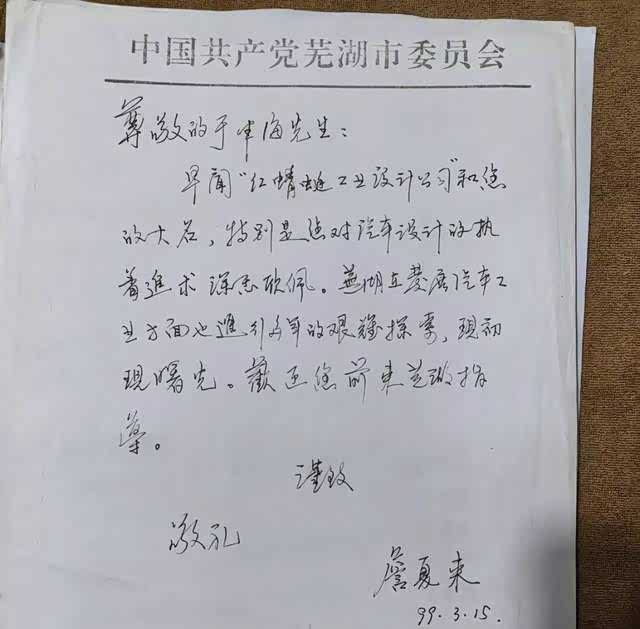 中国共产党芜湖市委员会
尊敬的于中海先生：
早闻“红蜻蜓工业设计公司”和您
的大名，特别是您对汽车设计的执
着追求深感钦佩。芜湖在发展汽车工
业方面也进行多年的艰难探索，现初
现曙光。歡迎您前来芜湖指
导。
谨致
敬礼
詹夏来
99.3.15.